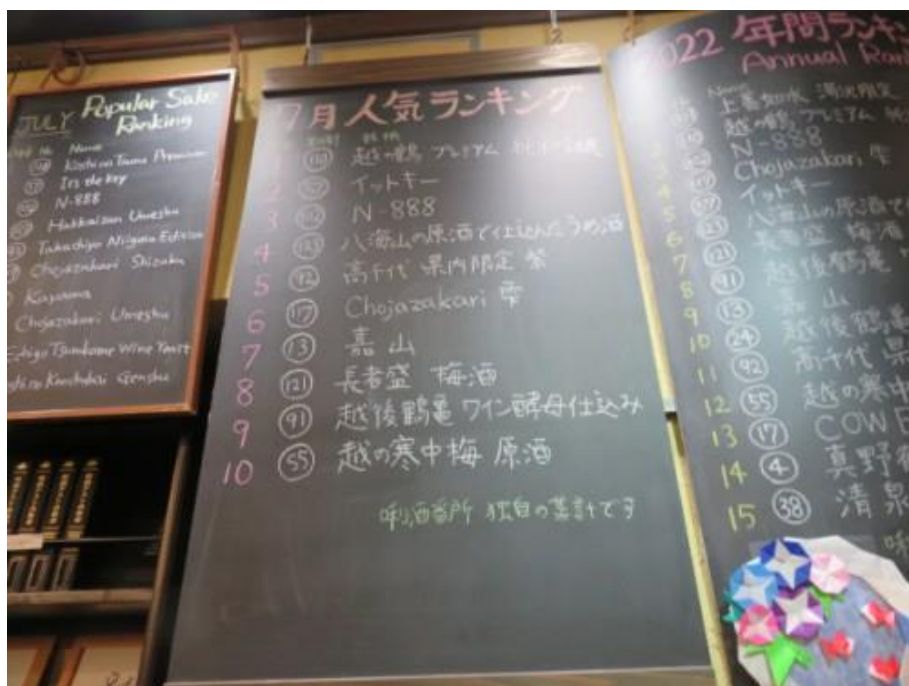 JULY Popular Sake
Ranking
Name
Koshino Tsuru Premium
It's the key
N-888
Hakkaisan Umeshu
Takachiyo Niigata Edition
Chojazakari Shizuku
Kayama
Chojazakari Umeshu
Echigo Tsurukame Wine Yeast
Kanchubai Genshu
7月 人気ランキング
1 越の鶴 プレミアム
2 イットキー
3 N-888
4 123 八海山の原酒で仕込んだうめ酒
5 92 高千代 県内限定
6 17 Chojazakari 雫
7 13 嘉山
8 121 長者盛 梅酒
9 91 越後鶴亀 ワイン酵母仕込み
10 55 越の寒中梅 原酒
唎酒番所 独自の集計です
2022 年間ランキン
Annual Ran
Name
上善如水 湯沢限定
越の鶴 プレミアム
N-888
Chojazakari 雫
5 イットキー
6 123 八海山の原酒で
7 121 長者盛 梅酒
8 91 越後鶴亀
9 13 嘉山
10 24 越後鶴亀
11 92 高千代 県
12 55 越の寒中
13 17 COW
14 4 真野鶴
15 38 清泉